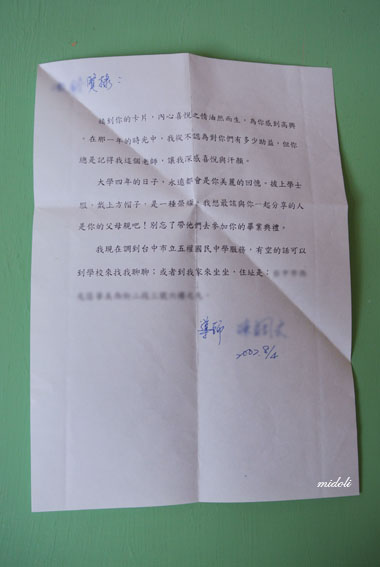 寶綠：
接到你的卡片，內心喜悅之情油然而生，為你感到高興
。在那一年的時光中，我從不認為對你們有多少助益，但你
總是記得我這個老師，讓我深感喜悅與汗顏。
大學四年的日子，永遠都會是你美麗的回憶，披上學士
服，戴上方帽子，是一種榮耀，我想最該與你一起分享的人
是你的父母親吧！別忘了帶他們去參加你的畢業典禮。
我現在調到台中市立五權國民中學服務，有空的話可以
到學校來找我聊聊；或者到我家來坐坐，住址是：
導師
2002 8/4
midoli